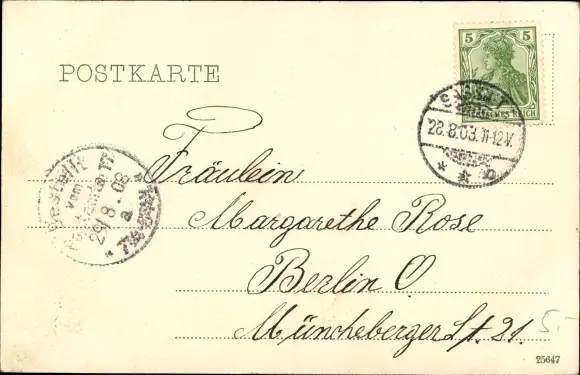 POSTKARTE
5 5
DEUTSCHES REICH
28.8.03.11-12V.
Bestellt
vom
29/8.03
Fräulein
Margarethe Rose
Berlin O
Müncheberger St. 21.
5.-
25647